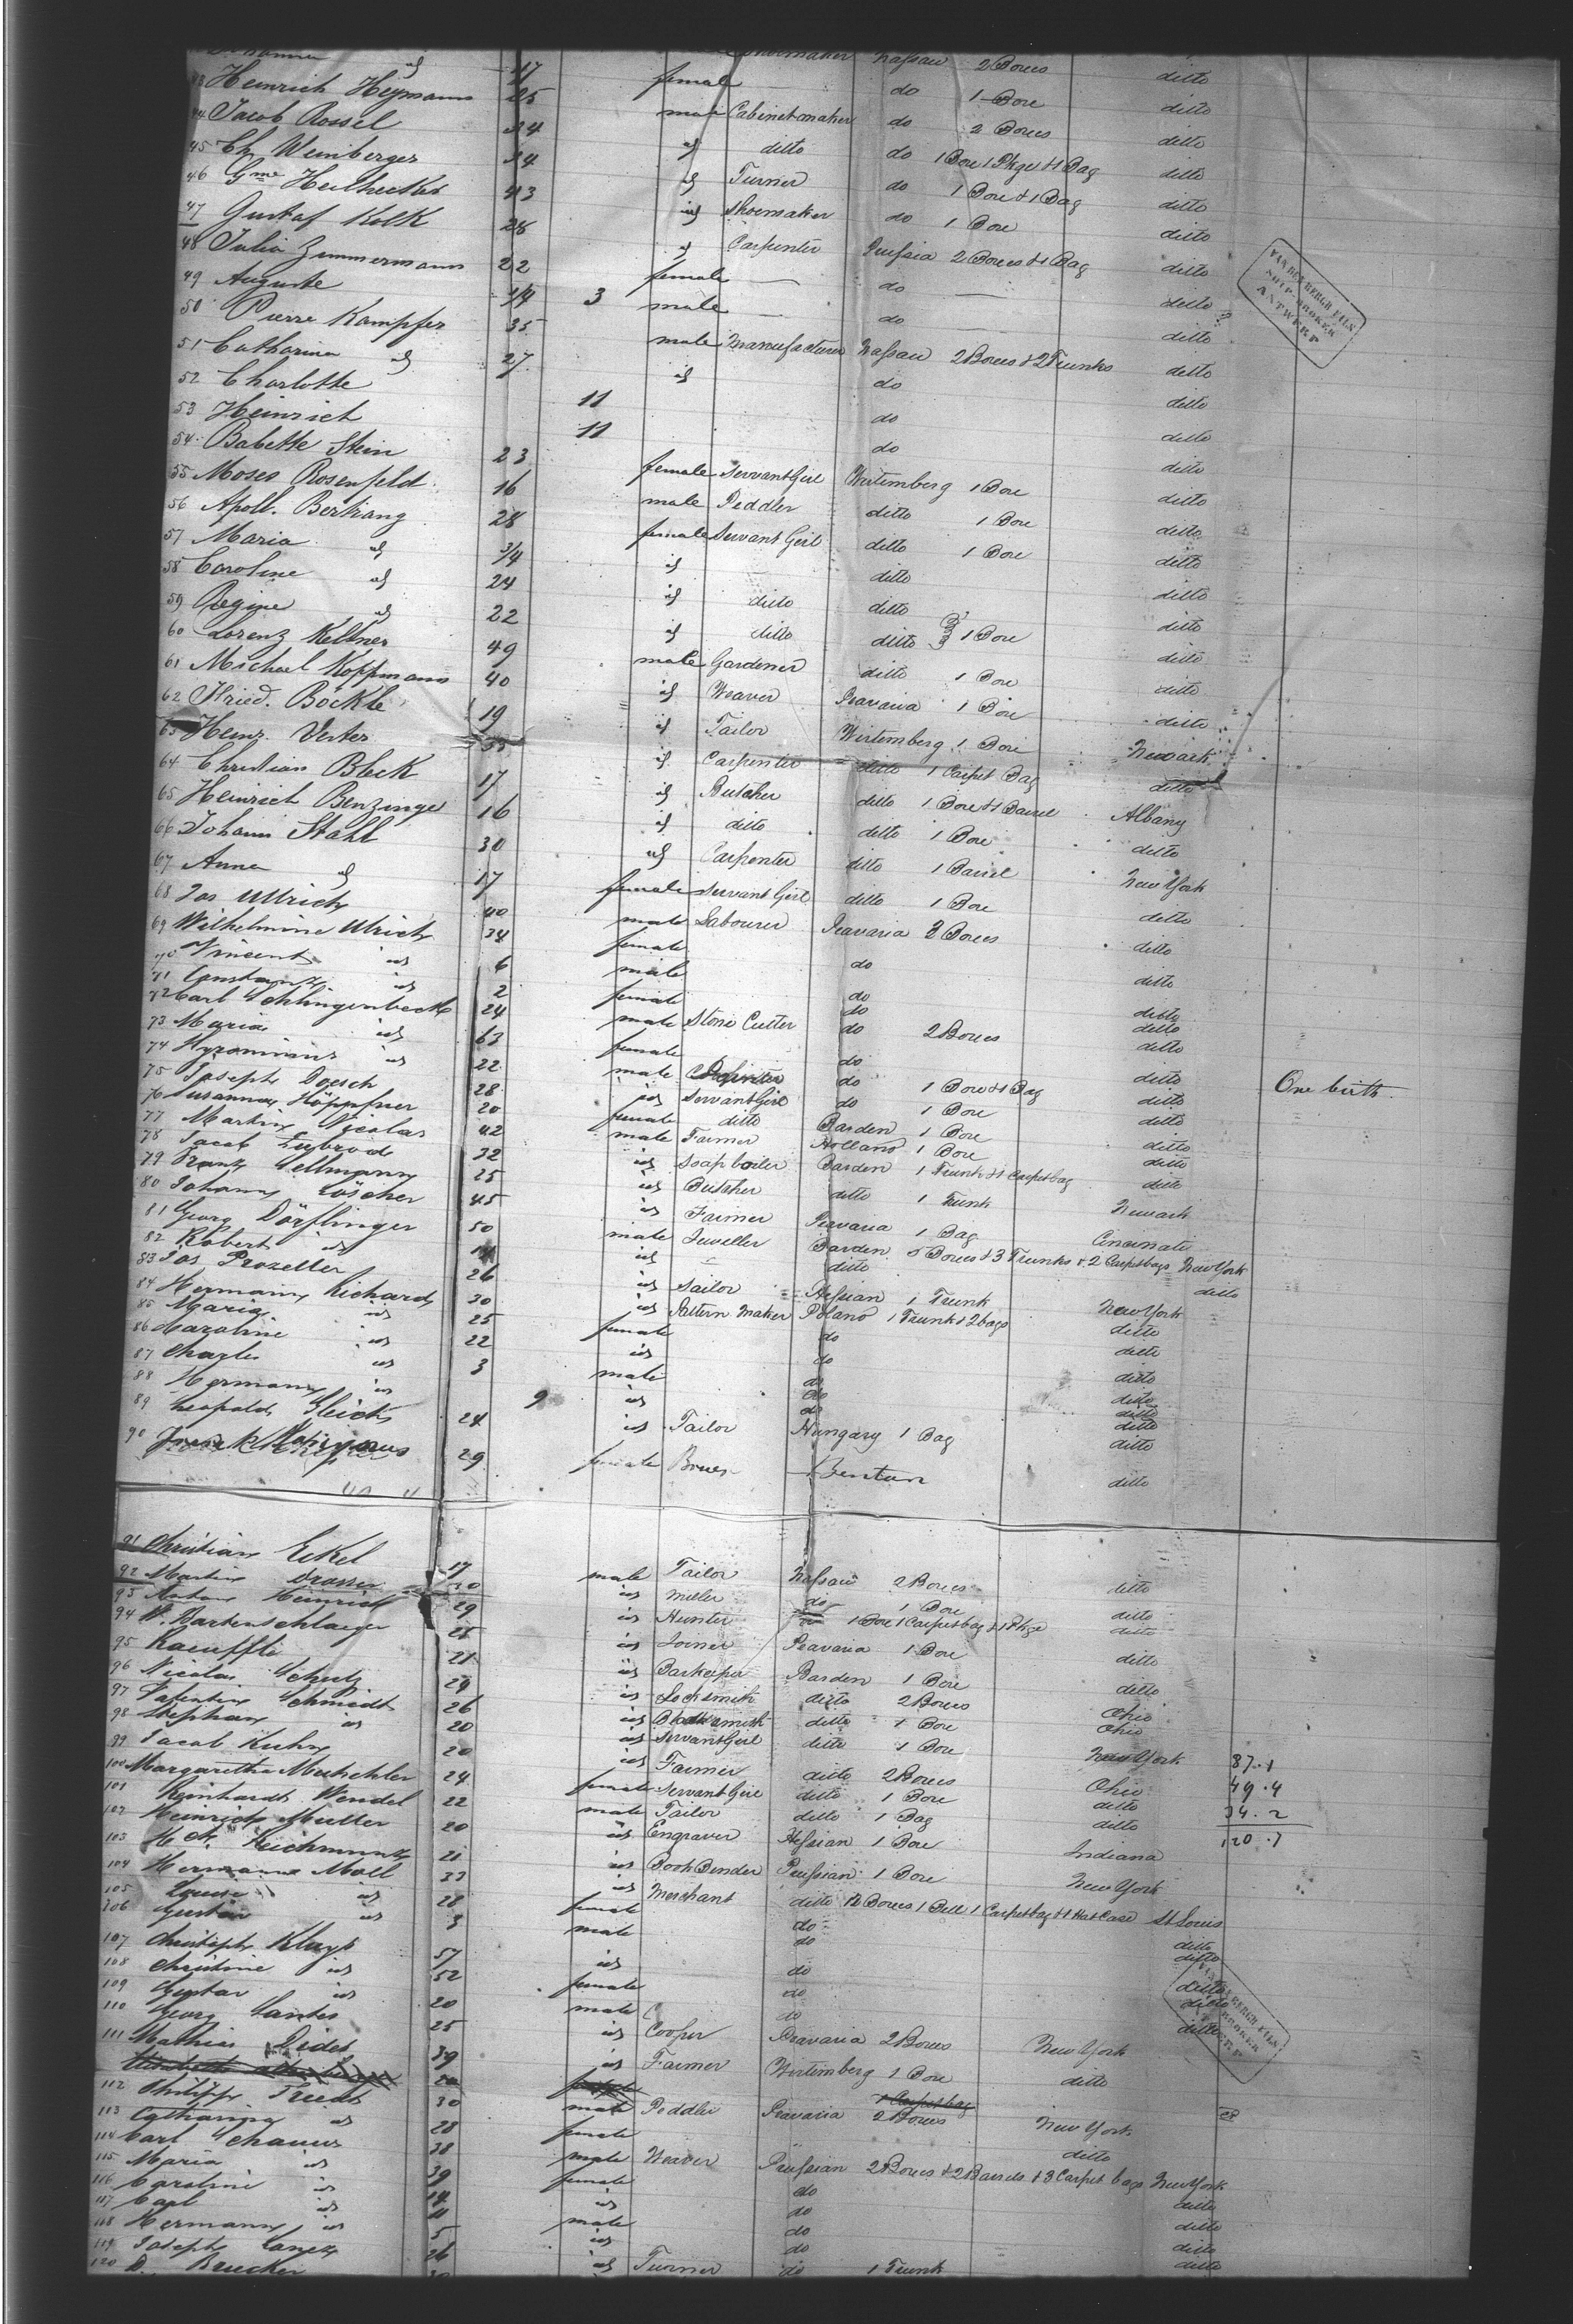 Johanna id 17 female Shoemaker Nassau 2 Boxes ditto
43 Heinrich Heymann 25 male Cabinetmaker do 1 Box ditto
44 Jacob Rossel 24 id ditto do 2 Boxes ditto
45 Ch Weinberger 24 id Turner do 1 Box 1 Pkge & 1 Bag ditto
46 Gme Heilhecker 43 id Shoemaker do 1 Box & 1 Bag ditto
47 Gustaf Kolk 28 id Carpenter do 1 Box ditto
48 Julia Zimmermann 22 female Prussia 2 Boxes & 1 Bag ditto
49 Auguste 3/4 3 male do ditto
50 Pierre Kampfer 35 male Manufacturer do ditto
51 Catharina id 27 id Nassau 2 Boxes & 2 Trunks ditto
52 Charlotte 11 do ditto
53 Heinrich 11 do ditto
54 Babette Stein 23 female Servant Girl Wirtemberg 1 Box ditto
55 Moses Rosenfeld 16 male Peddler ditto 1 Box ditto
56 Apoll. Bertrang 28 female Servant Girl ditto 1 Box ditto
57 Maria id 3/4 id ditto ditto
58 Caroline id 24 id ditto ditto ditto
59 Regine id 22 id ditto ditto 1 Box ditto
60 Lorenz Keltner 49 male Gardener ditto 1 Box ditto
61 Michael Koppmann 40 id Weaver Beavaria 1 Box ditto
62 Fried. Böckle 19 id Tailor Wirtemberg 1 Box Newark
63 Heinr. Vester 33 id Carpenter ditto 1 Carpet Bag ditto
64 Christian Bleck 17 id Butcher ditto 1 Box & 1 Barrel Albany
65 Heinrich Benzinge 16 id ditto ditto 1 Box ditto
66 Johann Stahl 30 id Carpenter ditto 1 Barrel New York
67 Anna id 17 female Servant Girl ditto 1 Box ditto
68 Jos Ullrich 40 male Labourer Beavaria 2 Boxes ditto
69 Wilhelmine Ulrich 34 female do ditto
70 Vincent id 6 male do ditto
71 Constanz id 2 female do ditto
72 Carl Schlingenbeck 24 male Stone Cutter do 2 Boxes ditto
73 Maria id 63 female do ditto
74 Hyronimus id 22 male Carpinter do 1 Box & 1 Bag ditto One birth.
75 Joseph Doesch 28 id Servant Girl do 1 Box ditto
76 Susanna Höppfner 20 female ditto Barden 1 Box ditto
77 Martin Nicolas 42 male Farmer Holland 1 Box ditto
78 Jacob 32 id Soap boiler Barden 1 Trunk & 1 Carpetbag ditto
79 Franz Sellmann 25 id Butcher ditto 1 Trunk Newark
80 Johann Löscher 45 id Farmer Beavaria 1 Bag Cincinati
81 Georg Dörflinger 50 male Juweller Barden 5 Boxes & 3 Trunks & 2 Carpetbags New York
82 Robert id id ditto ditto
83 Jos. Prozeller 26 id Sailor Hessian 1 Trunk New York
84 Hermann Richard 30 id Pattern Maker Poland 1 Trunk & 2 bags ditto
85 Maria id 25 female do ditto
86 Caroline id 22 id do ditto
87 Charles id 3 male do ditto
88 Hermann id 9 id do ditto
89 Leopold Gleich 24 id Tailor Hungary 1 Bag ditto
90 29 female ditto
91 Christian Eckel 17 male Tailor Nassau 2 Boxes ditto
92 Martin Drosser 20 id Miller do 1 Box ditto
93 Anton Heinrich 29 id Hunter 1 Box 1 Carpetbag & 1 Pkge ditto
94 W. Bartenschlaeger 25 id Joiner Beavaria 1 Box ditto
95 Kaeuffli 21 id Barkeeper Barden 1 Box ditto
96 Nicolas Schutz 29 id Locksmith ditto 2 Boxes Ohio
97 Valentin Schmidt 26 id Blacksmith ditto 1 Box Ohio
98 Stephan id 20 id Servant Girl ditto 1 Box New York
99 Jacob Kuhn 20 id Farmer ditto 2 Boxes Ohio
100 Margaretha Mutschler 24 female Servant Girl ditto 1 Box ditto
101 Reinhardt Wendel 22 male Tailor ditto 1 Bag ditto
102 Heinrich Muller 20 id Engraver Hessian 1 Box Indiana
87.1
49.4
34.2
120.7
103 Reichmann 21 id Book Bender Prussian 1 Box New York
104 Hermann Moll 33 id Merchant ditto 12 Boxes 1 Bell 1 Carpetbag & 1 Hat Case St Louis
105 Louise id 28 female do ditto
106 Gustav id 3 male do ditto
107 Christoph Kluyp 57 id do ditto
108 Christine id 52 female do ditto
109 Gustav id 20 male do ditto
110 Georg Santes 25 id Cooper Beavaria 2 Boxes New York
111 Mathias Didet 39 id Farmer Wirtemberg 1 Box ditto
112 Philipp Freed 30 male Peddler Beavaria 2 Boxes New York
113 Catharina id 28 female ditto
114 Carl Schauer 38 male Weaver Prussian 2 Boxes & 2 Barrels & 3 Carpet bags New York
115 Maria id 39 female do ditto
116 Caroline id 14 id do ditto
117 Carl id 11 male do ditto
118 Hermann id 5 id do ditto
119 Joseph 26 id Turner do 1 Trunk ditto
120 Bruecker
VAN DEN BERGH FILS
SHIP-BROKER
ANTWERP